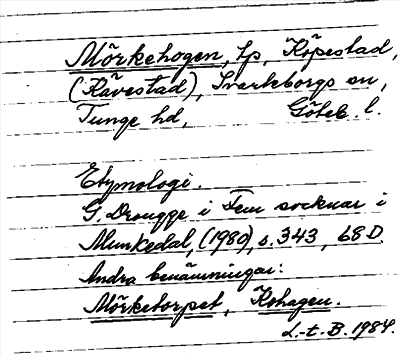 Mörkehogen, lp, Köpestad,
(Kävestad), Svarteborgs sn,
Tunge hd, Göteb. l.
Etymologi.
G. Drougge i Fem socknar i
Munkedal, (1980), s. 343, 68 D.
Andra benämningar:
Mörketorpet, Kohagen.
L-t. B. 1984.